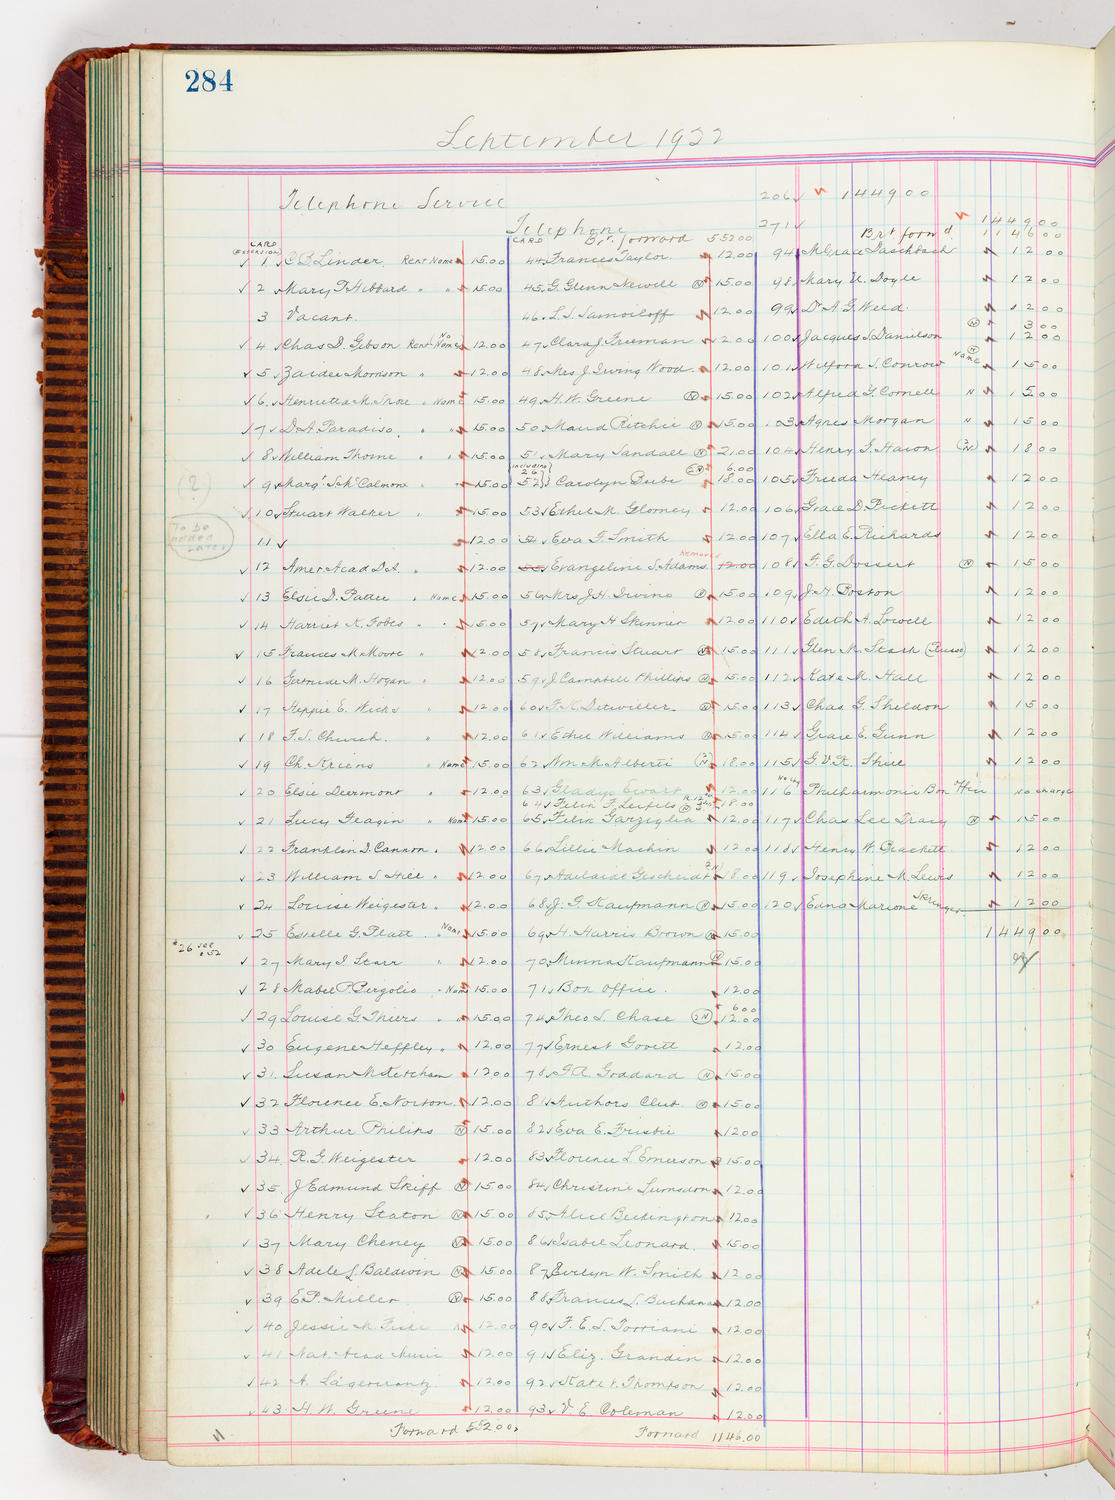 284
September 1922
Telephone Service
206 1449 00
Telephone
271 1449 00
CARD (EXTENSION)
CARD Brt. forward 552 00
Brt forw'd 1146 00
1 C.B. Linder. Rent Name 15.00
2 Mary T. Hibbard " " 15.00
3 Vacant.
4 Chas D. Gibson Rent No Name 12.00
5 Zaidee Morrison " 12.00
6 Henrietta M. " Name 15.00
7 D.A. Paradiso " " 15.00
8 William Thorne " " 15.00
9 Marg't McCalmon " 15.00
(?)
10 Stuart Walker " 15.00
To be added later
11 12.00
12 Amer. Acad D.A. " 12.00
13 Elsie D. Pattee " Name 15.00
14 Harriet K. Fobes " " 15.00
15 Frances M. Moore " 12.00
16 Gertrude M. Hogan " 12.00
17 Heppie E. Wicks " 12.00
18 F.S. Church. " 12.00
19 Ch. Kriens " Name 15.00
20 Elsie Deermont " 12.00
21 Lucy Feagin " Name 15.00
22 Franklin D. Cannon " 12.00
23 William S Hill " 12.00
24 Louise Weigester " 12.00
25 Estelle G. Platt " Name 15.00
#26 see #52
27 Mary I. Starr " 12.00
28 Mabel P. Pergolio " Name 15.00
29 Louise G. Thiers " " 15.00
30 Eugene Heffley " 12.00
31 Susan 12.00
32 Florence E. Norton. 12.00
33 Arthur Philips N 15.00
34 R.G. Weigester 12.00
35 J Edmund Skiff N 15.00
36 Henry Staton N 15.00
37 Mary Cheney N 15.00
38 Adele L. Baldwin N 15.00
39 E.P. Miller N 15.00
40 Jessie M. Fisk 12.00
41 Nat. Acad Music 12.00
42 A. Lagercrantz 12.00
43 H W Greene 12.00
Forward 552.00
44 Frances Taylor 12.00
45 G. Glenn Newell N 15.00
46 L.S. Samoiloff 12.00
47 Clara J Freeman 12.00
48 Mrs J Irving Wood. 12.00
49 H.W. Greene N 15.00
50 Maud Ritchie N 15.00
51 Mary Sandall N 21.00
(including 26) 52 Carolyn Beebe 2N 6.00 18.00
53 Ethel M. 12.00
54 Eva F. Smith 12.00
55 Evangeline S. Adams Removed 12.00
56 Mrs J.H. Irvine N 15.00
57 Mary H Skinner 12.00
58 Francis Stuart N 15.00
59 J Campbell Phillips N 15.00
60 F.K. Detwiller N 15.00
61 Ethel Williams N 15.00
62 Wm M. Alberti 2N 18.00
63 Gladys Ewart 12.00
64 Felix F. Leifels 18.00
65 Felix Garziglia 12.00
66 Lillie Machin 12.00
67 Adelaide Gescheidt 2N 18.00
68 J.G. Kaufmann N 15.00
69 H. Harris Brown N 15.00
70 Minna Kaufmann N 15.00
71 Box Office 12.00
74 Theo S. Chase 2N 6.00 12.00
77 Ernest Govett 12.00
78 F.A. Goddard N 15.00
81 Authors Club N 15.00
82 Eva E. Frisbie 12.00
83 Florence L. Emerson 15.00
84 Christine Lumsdon 12.00
85 Alice Beckington 12.00
86 Isabel Leonard 15.00
87 Evelyn W. Smith 12.00
88 Frances L. Buchanan 12.00
90 F.E.S. Torriani 12.00
91 Eliz. Grandin 12.00
92 Kate V. Thompson 12.00
93 V.E. Coleman 12.00
Forward 1146.00
94 M Grace Daschbach 12 00
98 Mary U. Doyle 12 00
99 Dr A.G. Weed. 12 00
N 3 00
100 Jacques S. Danielson 12 00
101 Wilford S. Conrow Name N 15 00
102 Alfred Y. Cornell N 15 00
103 Agnes Morgan N 15 00
104 Henry G. Hanon 2N 18 00
105 Frieda Heaney 12 00
106 Grace D. Pickett 12 00
107 Ella E. Richards 12 00
108 F.G. Dossert N 15 00
109 J.H. Poston 12 00
110 Edith A. Lowell 12 00
111 Glen M. Stark (Russo) 12 00
112 Kate M. Hall 12 00
113 Chas G. Sheldon 15 00
114 Grace E. Gunn 12 00
115 G.V.R. Shiel 12 00
116 Philharmonic Box Office No charge
117 Chas Lee Tracy N 15 00
118 Henry W. Crackett 12 00
119 Josephine M. Lewis 12 00
120 Edna Marione Springer 12 00
1449 00